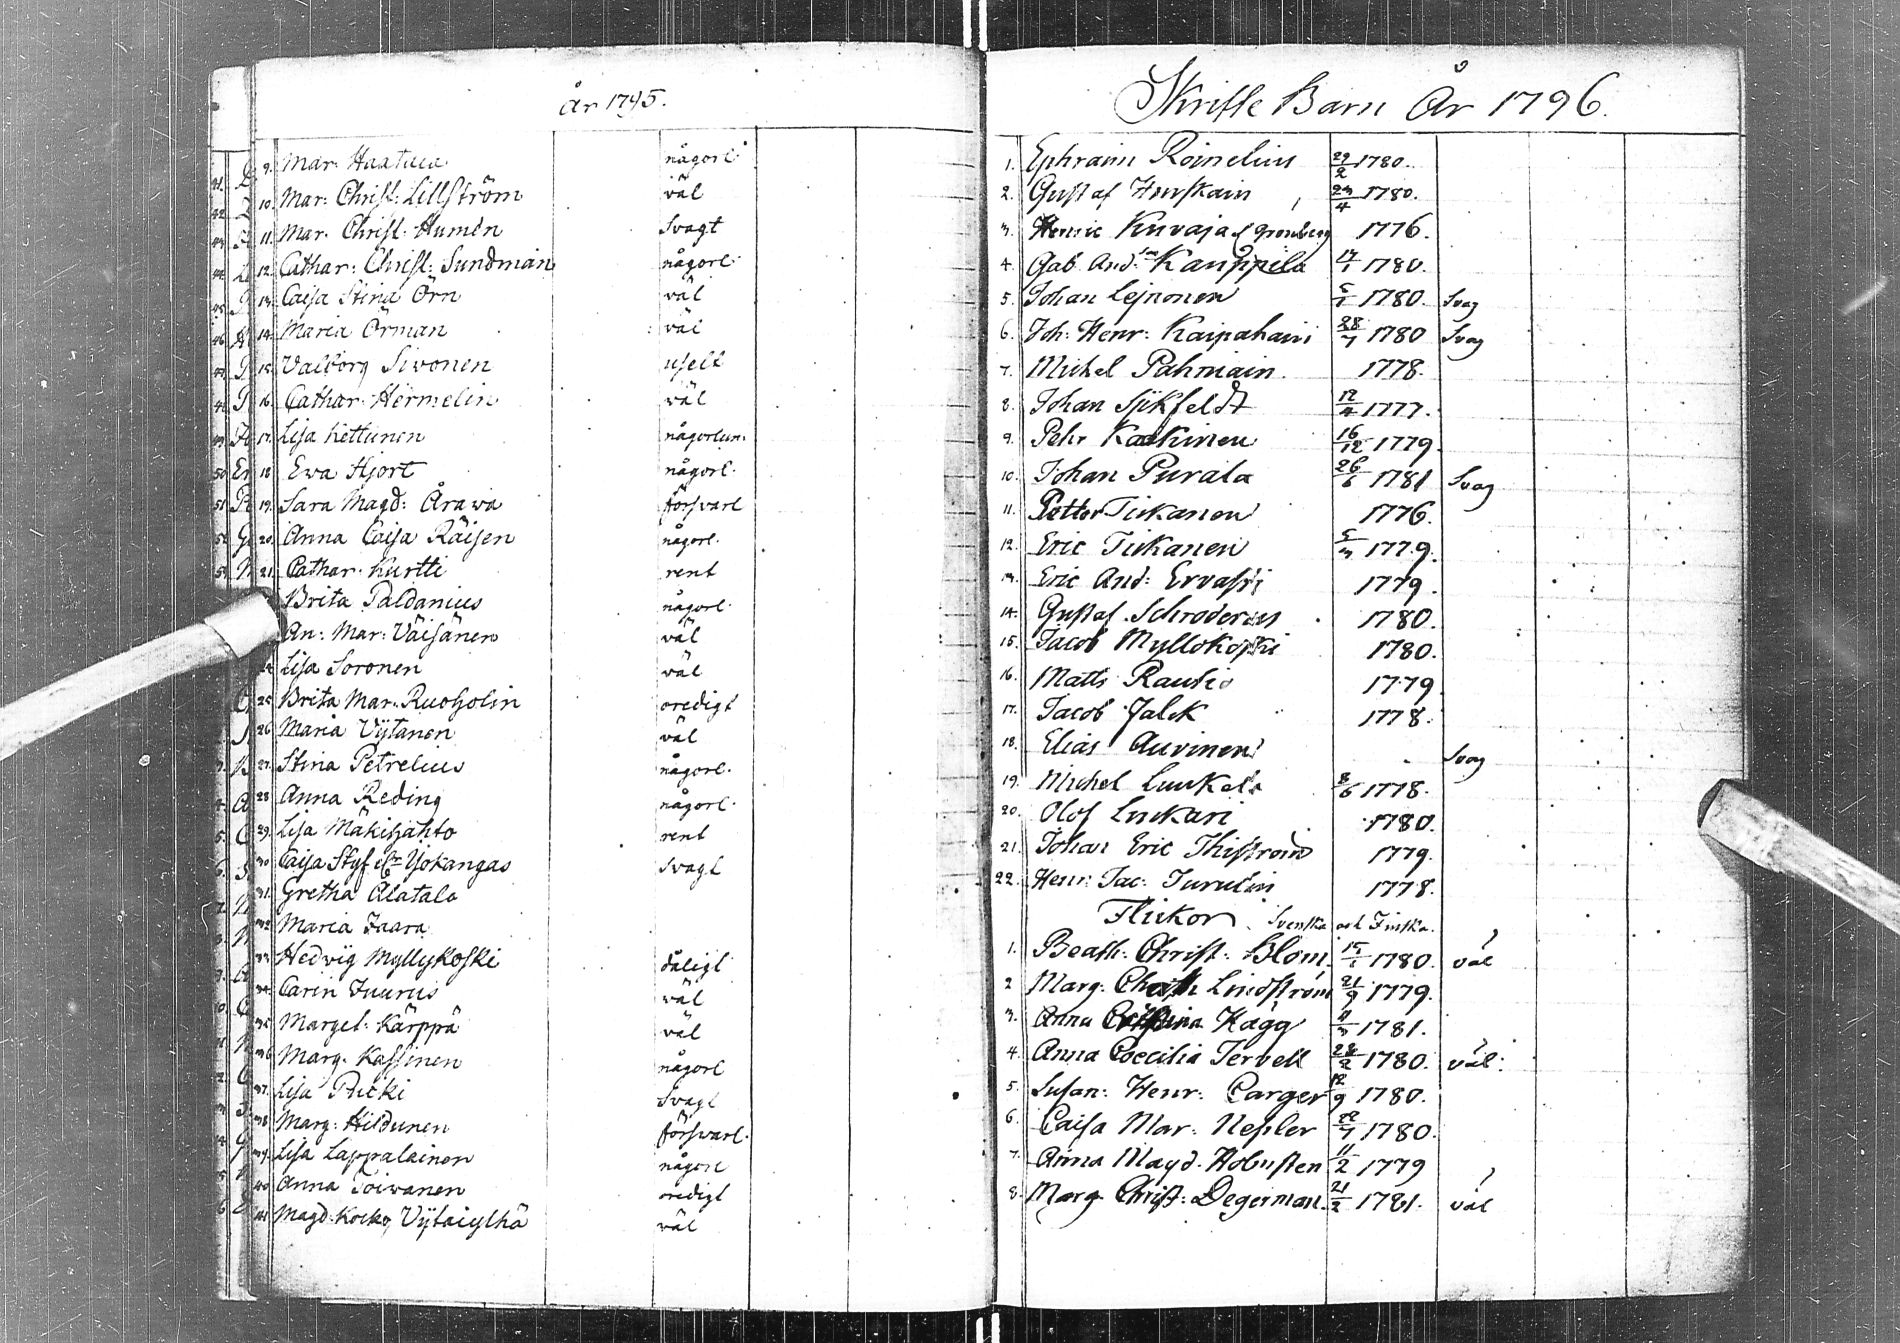 år 1795.
9. Mar: Haataia någorl:
10. Mar: Christ: Lillström väl
11. Mar. Christ. Humén Svagt
12. Cathar: Christ: Sundman någorl.
13. Caisa Stina Örn väl
14. Maria Örman väl
15. Valborg Sivonen uselt
16. Cathar. Hermelin väl
17. Lisa Kettunen någorlun:
18 Ewa Hjort någorl.
19. Sara Magd: Årawa försvarl
20. Anna Caisa Räisen någorl.
21. Cathar. Kurtti rent
Brita Paldanius någorl.
An: Mar: Väisänen väl
24. Lisa Soronen väl
25 Brita Mar: Ruotzolin oredigt
26 Maria Vÿtanen väl
27. Stina Petrelius någorl.
28 Anna Reding någorl.
29. Lisa Mäkitahto rent
30 Caisa Styf Yökangas Svagt
31. Gretha Alatalo
32 Maria Jaara
33 Hedvig Myllykoski dåligt
34. Carin Juurus väl
35 Marget. Kärppä väl
36 Marg. Kassinen någorl
37. Lisa Pricki Svagt
38 Marg: Hildunen försvarl.
39. Lisa Lappalainen någorl
40 Anna Toivanen oredigt
41 Magd. Vÿtaiylhä väl
Skrifte Barn År 1796.
1. Ephraim Roinelius 22/2 1780.
2. Gustaf Hurskain 23/4 1780.
3. Henric Kuvaja Grönberg 1776.
4. Gab. And: Kauppila 17/1 1780.
5. Johan Lejnonen 5/1 1780. Svag
6. Joh: Henr: Kaipahain 28/7 1780 Svag
7. Michel Pahmain. 1778.
8. Johan Sjikfeldt 12/4 1777.
9. Pehr Kaakinen 16/12 1779.
10. Johan Purala 26/6 1781 Svag
11. Petter Tiikanen 1776.
12. Eric Tiikanen 5/3 1779.
13. Eric And: Ervasti 1779.
14. Gustaf Schroderus 1780.
15. Jacob Myllokoski 1780.
16. Matts Rautio 1779
17. Jacob Falck 1778.
18. Elias Auvinen Svag
19. Michel Luukela 8/6 1778.
20. Olof Luukari 1780.
21. Johan Eric Thiström 1779.
22. Henr: Jac: Jurulin 1778.
Flickor Svenska och Finska.
1. Beath: Christ: Blom. 15/1 1780. väl
2 Marg: Cath Lindström 21/9 1779.
3. Anna Kagg 11/3 1781.
4. Anna Coecilia Tervell 28/2 1780. väl.
5. Susan: Henr: Carger 12/9 1780.
6. Caisa Mar: Uesler 22/7 1780.
7. Anna Magd. Hobusten 11/2 1779
8. Marg. Christ: Degerman. 21/2 1781. väl